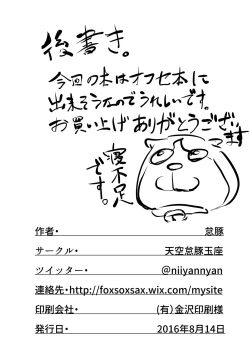 後書き。
今回の本はオフセ本に
出来そうなのでうれしいです。
お買い上げありがとうござい
ます
寝不足
です。
作者・ 怠豚
サークル・ 天空怠豚玉座
ツイッター・ @niiyannyan
連絡先・http://foxsoxsax.wix.com/mysite
印刷会社・ (有)金沢印刷様
発行日・ 2016年8月14日